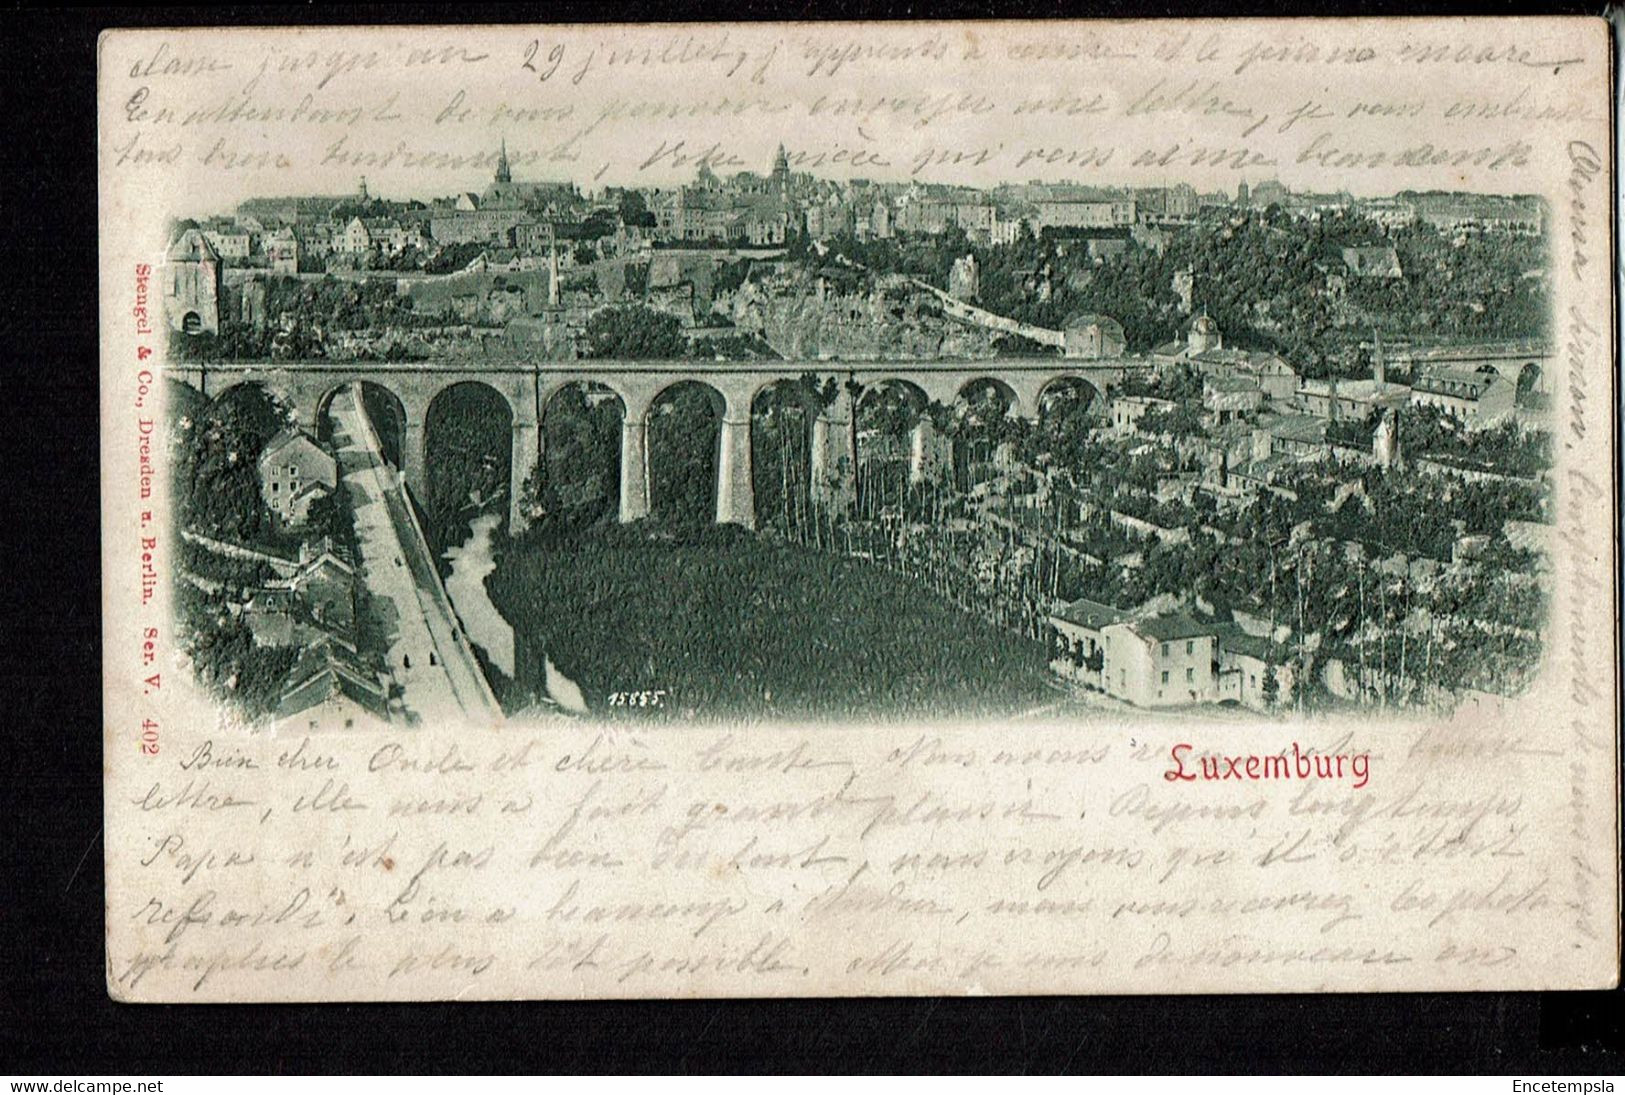 Bien cher Oncle et chère Tante, Nous avons reçu votre bonne
lettre, elle nous a fait grand plaisir. Depuis longtemps
Papa n'est pas bien du tout, nous croyons qu'il s'était
refroidi. Léon a beaucoup à, mais vous recevrez les photo-
graphies le plus tôt possible. Moi je vais de nouveau en
classe jusqu'au 29 juillet, j'apprends à et le piano encore.
En attendant de vous pouvoir envoyer une lettre, je vous embrasse
tous bien tendrement, Votre nièce qui vous aime beaucoup
Anna Simon. Compliments de nous tous.
Luxemburg
Stengel & Co., Dresden u. Berlin. Ser. V. 402
15855.
Encetempsla